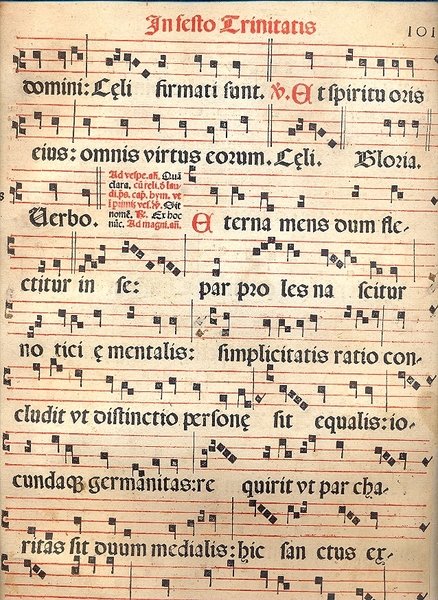 In festo Trinitatis
101
domini: Cęli firmati sunt. ℣. Et spiritu oris
eius: omnis virtus eorum. Cęli. Gloria.
Verbo.
Ad vespe. añ. Quā
clara. cū reli. d̄ lau
di. ps. cap. hym. vt
i primis ves. ℣. Sit
nomē. ℟. Ex hoc
nūc. Ad magni. añ.
Eterna mens dum fle-
ctitur in se: par proles nascitur
notici ę mentalis: simplicitatis ratio con-
cludit vt distinctio personę sit equalis: io-
cundaqꝫ germanitas: re quirit vt par cha-
ritas sit duum medialis: hic sanctus ex-